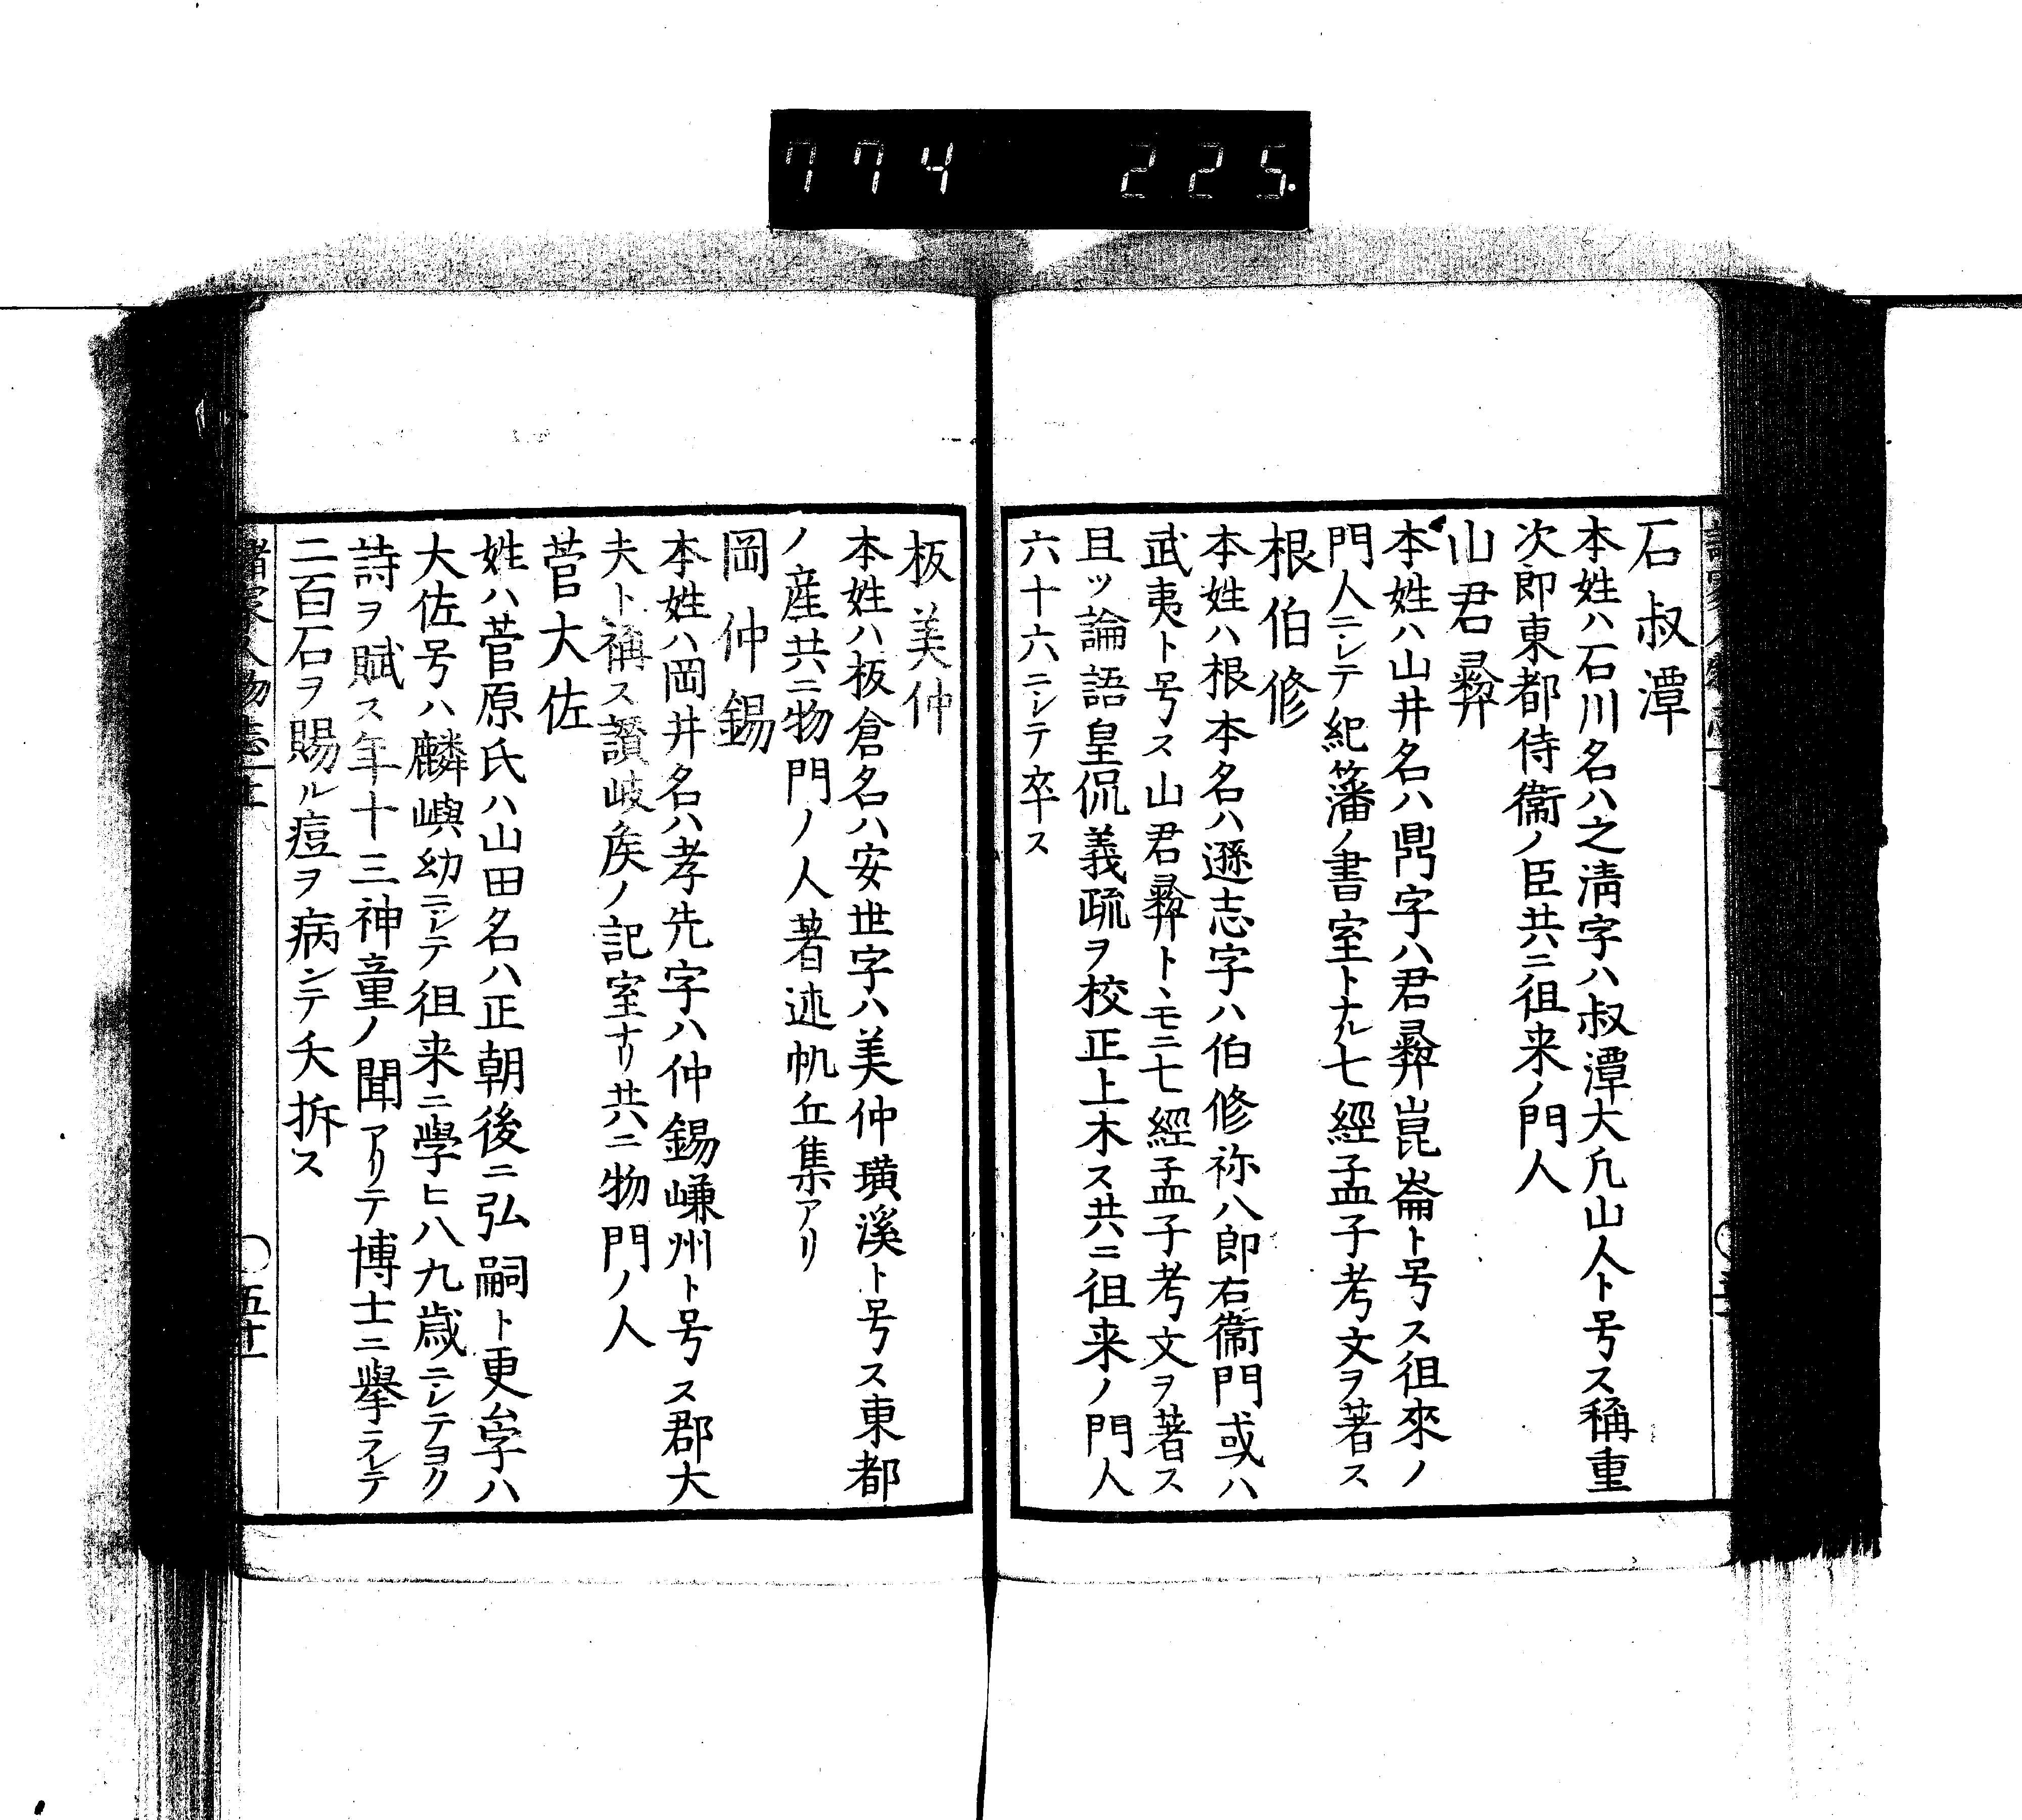 774 225.
石叔潭
本姓ハ石川名ハ之清字ハ叔潭大凢山人ト号ス稱重
次郎東都侍衞ノ臣共ニ徂来ノ門人
山君彜
本姓ハ山井名ハ鼎字ハ君彜崑崙ト号ス徂來ノ
門人ニシテ紀藩ノ書室トナル七經孟子考文ヲ著ス
根伯修
本姓ハ根本名ハ遜志字ハ伯修祢八郎右衞門或ハ
武夷ト号ス山君彜トヽモニ七經孟子考文ヲ著ス
且ツ論語皇侃義疏ヲ校正上木ス共ニ徂来ノ門人
六十六ニシテ卒ス
板美仲
本姓ハ板倉名ハ安世字ハ美仲璜溪ト号ス東都
ノ産共ニ物門ノ人著述帆丘集アリ
岡仲錫
本姓ハ岡井名ハ孝先字ハ仲錫嵰州ト号ス郡大
夫ト稱ス讃岐矦ノ記室ナリ共ニ物門ノ人
菅大佐
姓ハ菅原氏ハ山田名ハ正朝後ニ弘嗣ト更ム字ハ
大佐号ハ麟嶼幼ニシテ徂来ニ學ヒ八九歳ニシテヨク
詩ヲ賦ス年十三神童ノ聞アリテ博士ニ擧ラレテ
二百石ヲ賜ル痘ヲ病ンテ夭拆ス
諸家人物志
〇五十